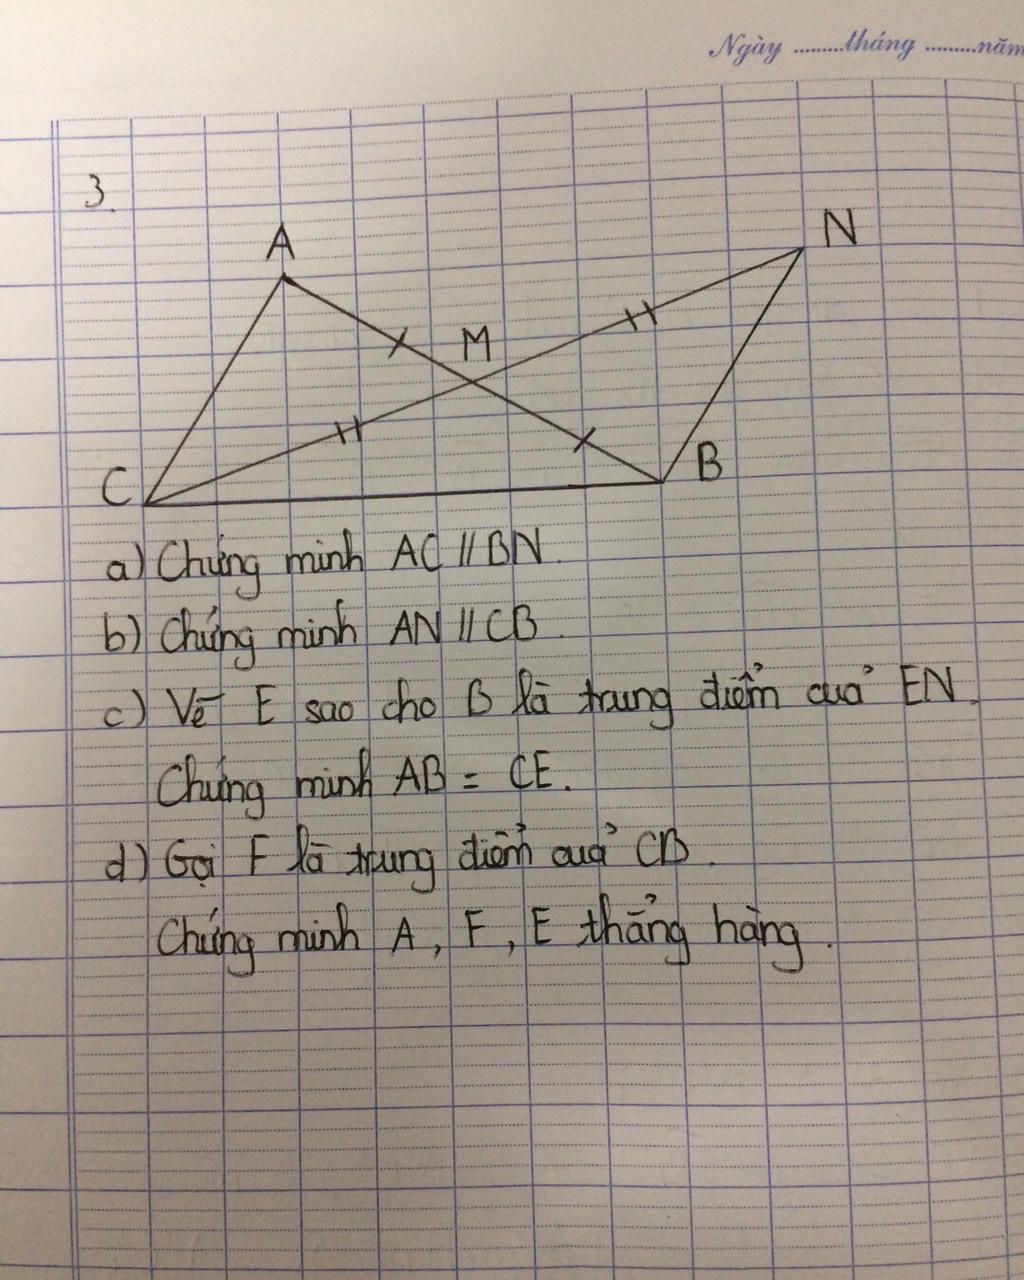 Ngày .........tháng .........năm
3.
A
N
M
C
B
a) Chứng minh AC // BN.
b) Chứng minh AN // CB.
c) Vẽ E sao cho B là trung điểm của EN.
Chứng minh AB = CE.
d) Gọi F là trung điểm của CB.
Chứng minh A, F, E thẳng hàng.